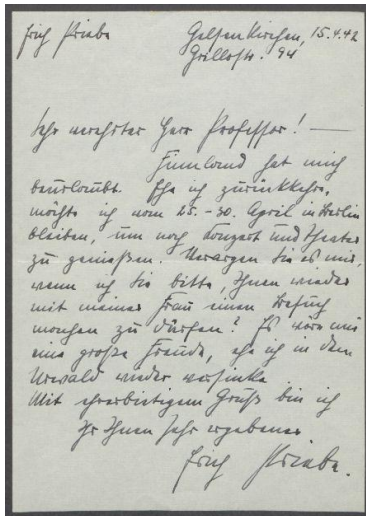 Erich Kriebe Gelsenkirchen, 15.4.42
Grillostr. 94
Sehr verehrter Herr Professor! —
Finnland hat mich
beurlaubt. Ehe ich zurückkehre,
möchte ich vom 25.-30. April in Berlin
bleiben, um noch Konzert und Theater
zu genießen. Verargen Sie es mir,
wenn ich Sie bitte, Ihnen wieder
mit meiner Frau einen Besuch
machen zu dürfen? Es wäre mir
eine große Freude, ehe ich in dem
Urwald wieder versinke.
Mit ehrerbietigem Gruß bin ich
Ihr Ihnen sehr ergebener
Erich Kriebe.